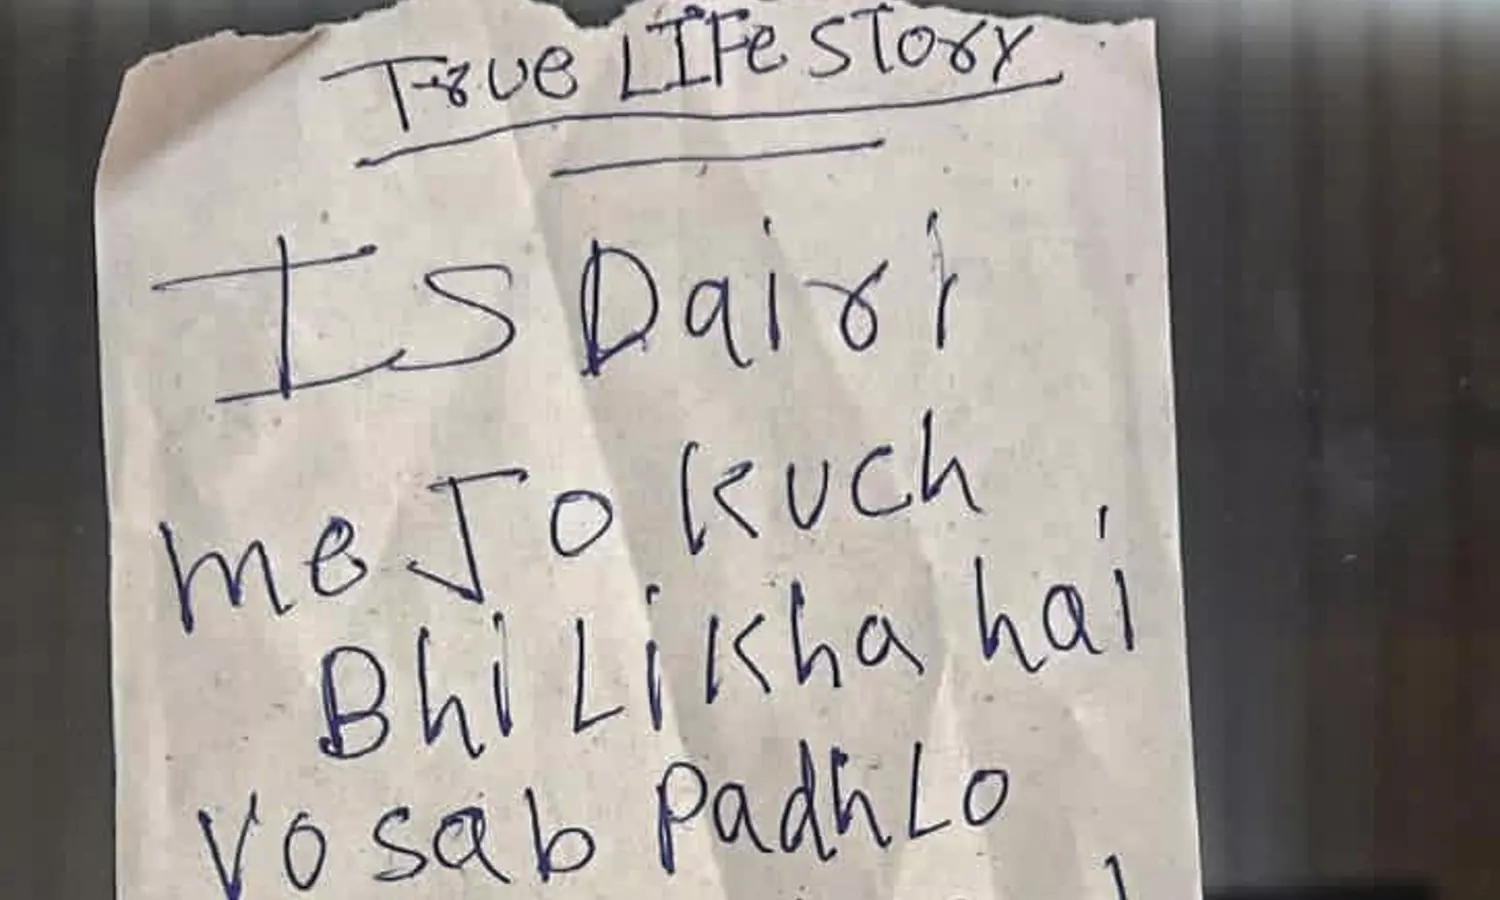 True LIFe story
Is Dairi
me Jo kuch
Bhi Likha hai
Vo sab Padh Lo